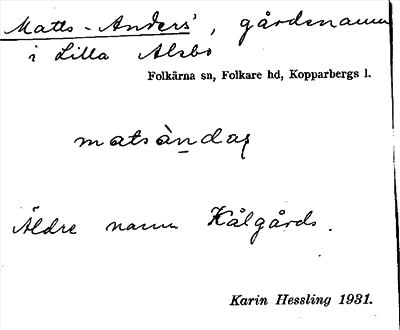 Matts-Anders', gårdsnamn
i Lilla Alsbo
Folkärna sn, Folkare hd, Kopparbergs l.
matsàndaʂ
Äldre namn Kålgårds.
Karin Hessling 1931.